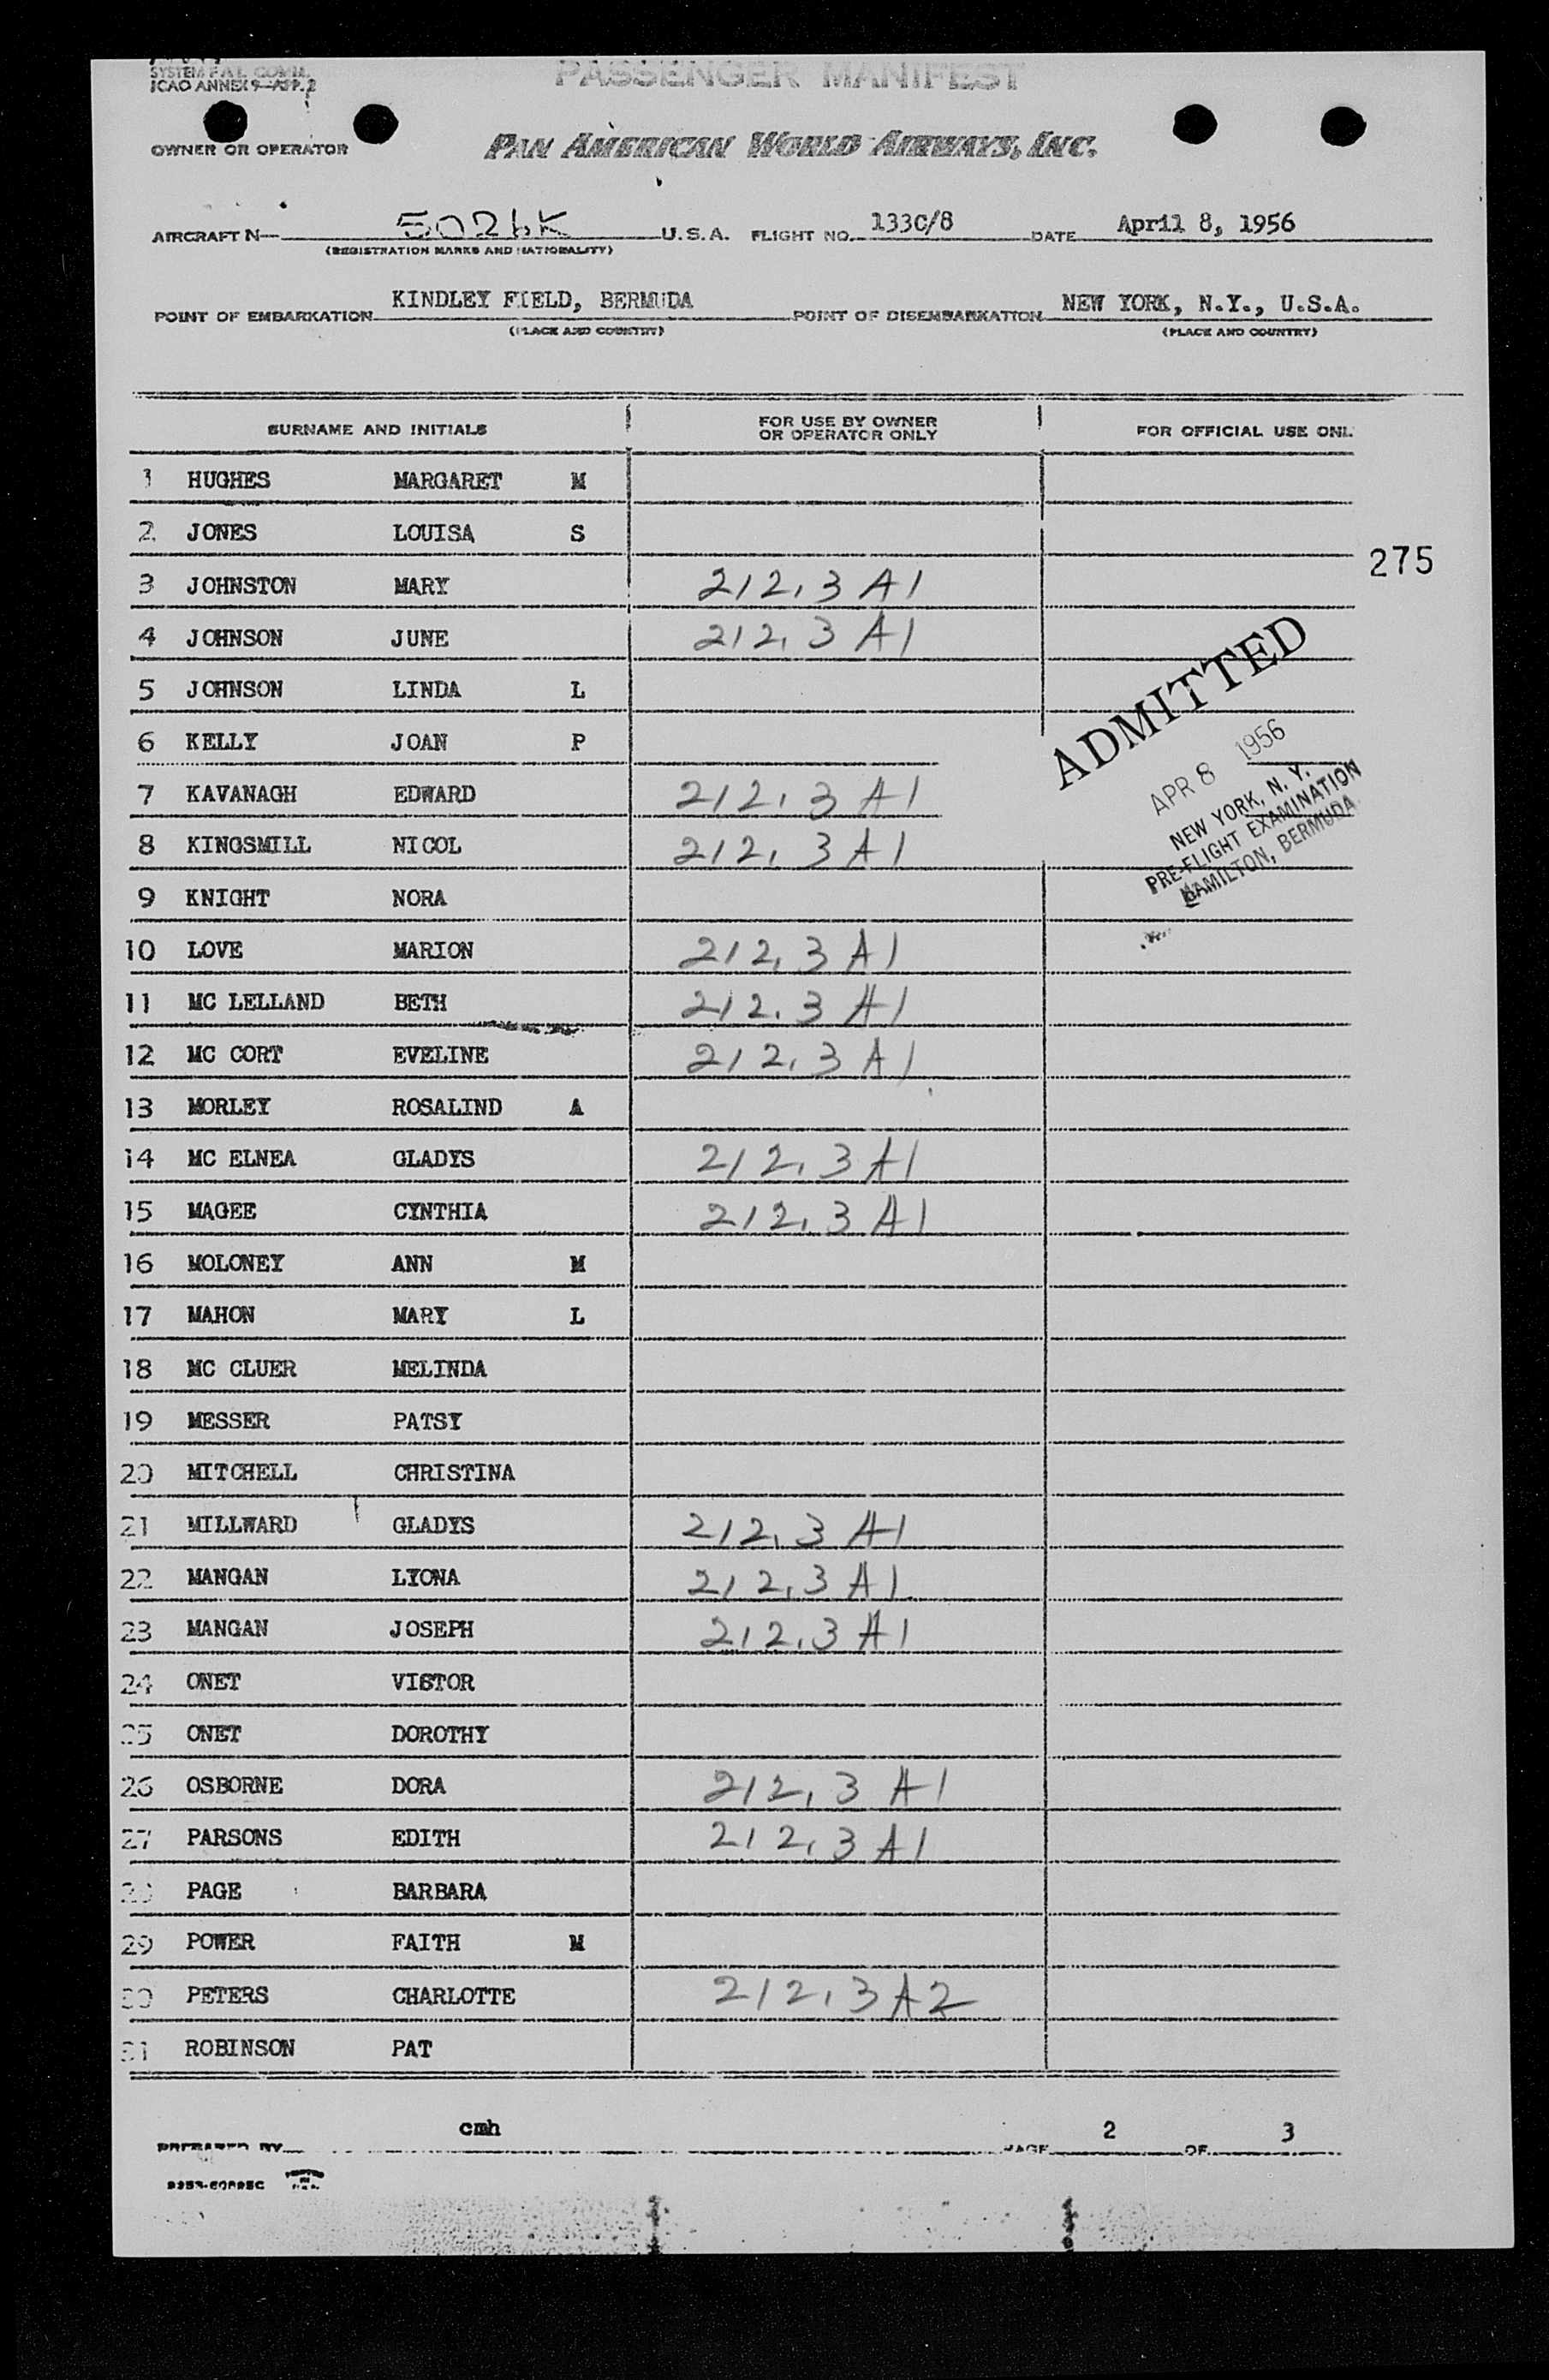 SYSTEM FAL COMM.
ICAO ANNEX 9—APP. 2
PASSENGER MANIFEST
OWNER OR OPERATOR PAN AMERICAN WORLD AIRWAYS, INC.
AIRCRAFT N— U.S.A. FLIGHT NO. 133C/8 DATE April 8, 1956
(REGISTRATION MARKS AND NATIONALITY)
POINT OF EMBARKATION KINDLEY FIELD, BERMUDA POINT OF DISEMBARKATION NEW YORK, N.Y., U.S.A.
(PLACE AND COUNTRY) (PLACE AND COUNTRY)
SURNAME AND INITIALS FOR USE BY OWNER OR OPERATOR ONLY FOR OFFICIAL USE ONL
1 HUGHES MARGARET M
2 JONES LOUISA S
275
3 JOHNSTON MARY 212.3 A1
4 JOHNSON JUNE 212.3 A1
5 JOHNSON LINDA L
ADMITTED
6 KELLY JOAN P
APR 8 1956
7 KAVANAGH EDWARD 212.3 A1
NEW YORK, N. Y.
PRE-FLIGHT EXAMINATION
HAMILTON, BERMUDA
8 KINGSMILL NICOL 212.3 A1
9 KNIGHT NORA
10 LOVE MARION 212.3 A1
11 MC LELLAND BETH 212.3 A1
12 MC CORT EVELINE 212.3 A1
13 MORLEY ROSALIND A
14 MC ELNEA GLADYS 212.3 A1
15 MAGEE CYNTHIA 212.3 A1
16 MOLONEY ANN M
17 MAHON MARY L
18 MC CLUER MELINDA
19 MESSER PATSY
20 MITCHELL CHRISTINA
21 MILLWARD GLADYS 212.3 A1
22 MANGAN LYONA 212.3 A1
23 MANGAN JOSEPH 212.3 A1
24 ONET VISTOR
25 ONET DOROTHY
26 OSBORNE DORA 212.3 A1
27 PARSONS EDITH 212.3 A1
28 PAGE BARBARA
29 POWER FAITH M
30 PETERS CHARLOTTE 212.3 A2
31 ROBINSON PAT
PREPARED BY cmh PAGE 2 OF 3